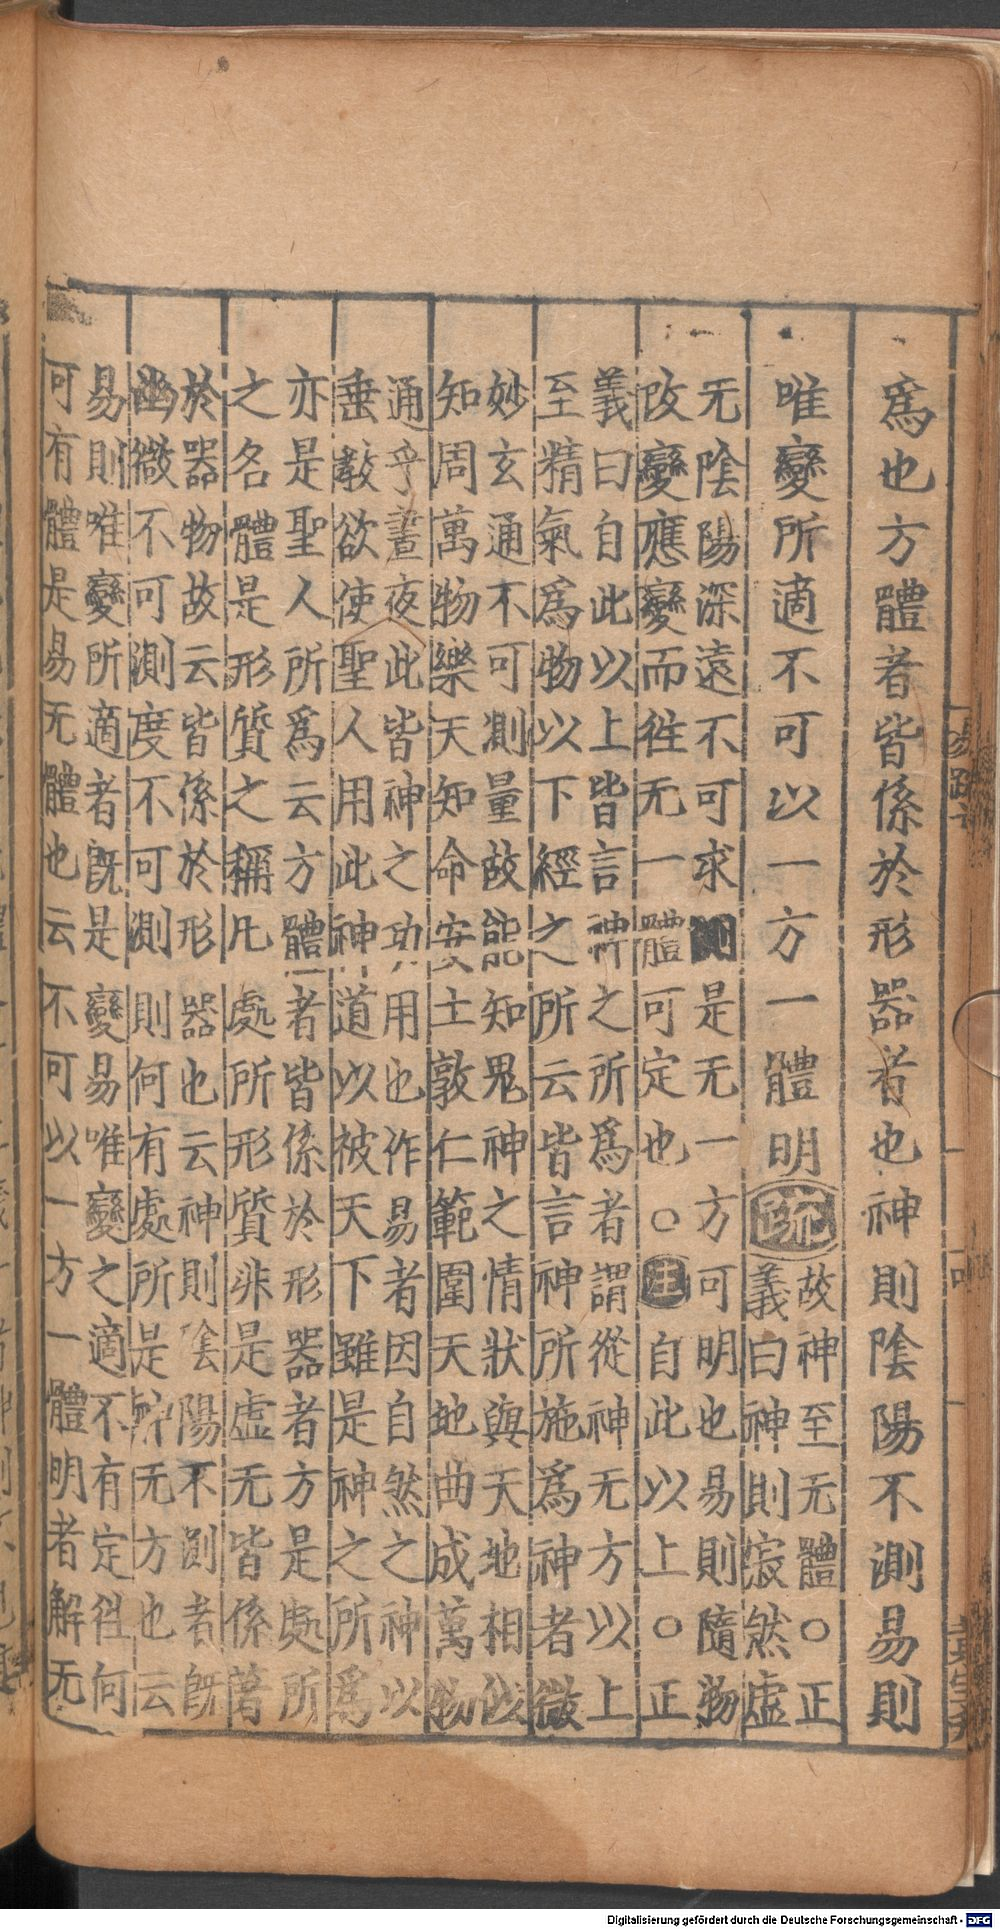 爲也方體者皆係於形器者也神則陰陽不測易則
唯變所適不可以一方一體明疏
故神至无體○正
義曰神則寂然虛
无陰陽深遠不可求測是无一方可明也易則隨物
改變應變而徃无一體可定也○注自此以上○正
義曰自此以上皆言神之所爲者謂從神无方以上
至精氣爲物以下經之所云皆言神所施爲神者微
妙玄通不可測量故能知鬼神之情狀與天地相似
知周萬物樂天知命安土敦仁範圍天地曲成萬物
通乎晝夜此皆神之功用也作易者因自然之神以
垂敎欲使聖人用此神道以被天下雖是神之所爲
亦是聖人所爲云方體者皆係於形器者方是處所
之名體是形質之稱凡處所形質非是虛无皆係著
於器物故云皆係於形器也云神則陰陽不測者既
幽微不可測度不可測則何有處所是神无方也云
易則唯變所適者既是變易唯變之適不有定徃何
可有體是易无體也云不可以一方一體明者解无
Digitalisierung gefördert durch die Deutsche Forschungsgemeinschaft - DFG